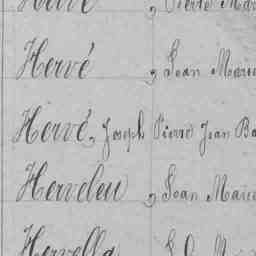 Hervé, Pierre Mar
Hervé, Jean Marie
Hervé, Joseph Pierre Jean Ba
Herveleu, Jean Marie
Hervella